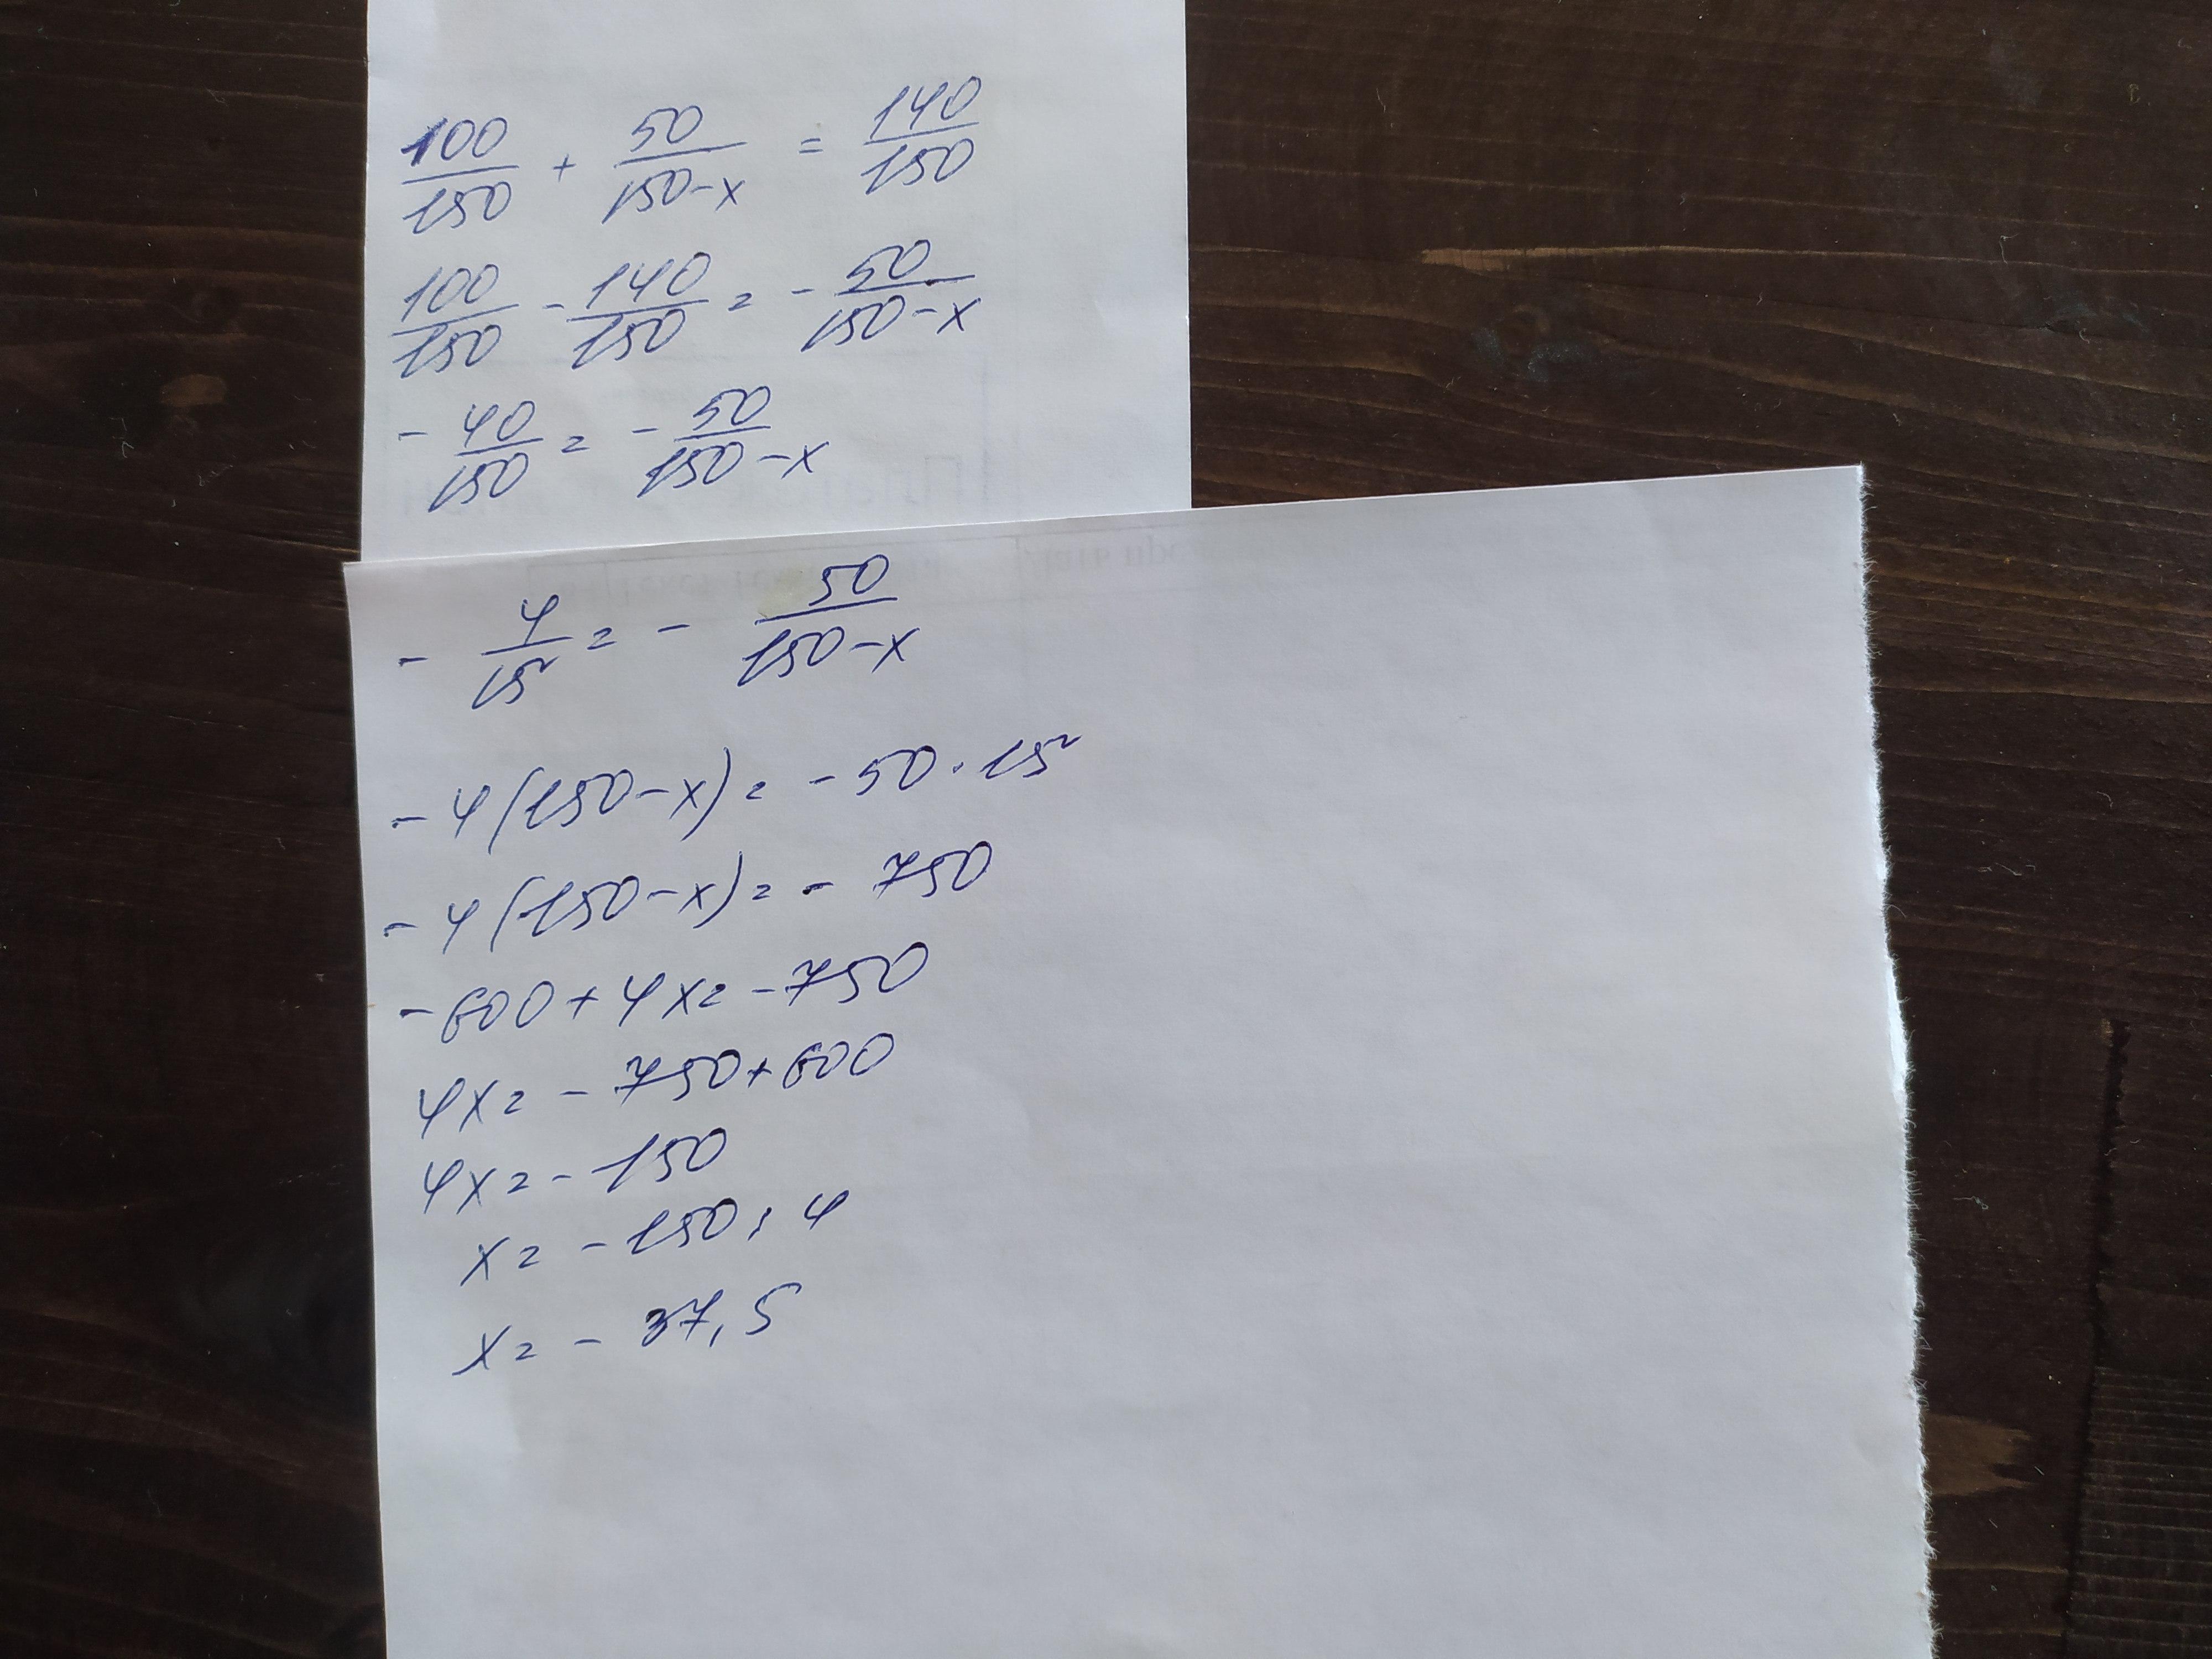 100/150 + 50/(150-x) = 140/150
100/150 - 140/150 = - 50/(150-x)
- 40/150 = - 50/(150-x)
- 4/15 = - 50/(150-x)
-4(150-x) = -50·15
-4(150-x) = - 750
-600+4x = -750
4x = -750+600
4x = -150
x = -150:4
x = - 37,5